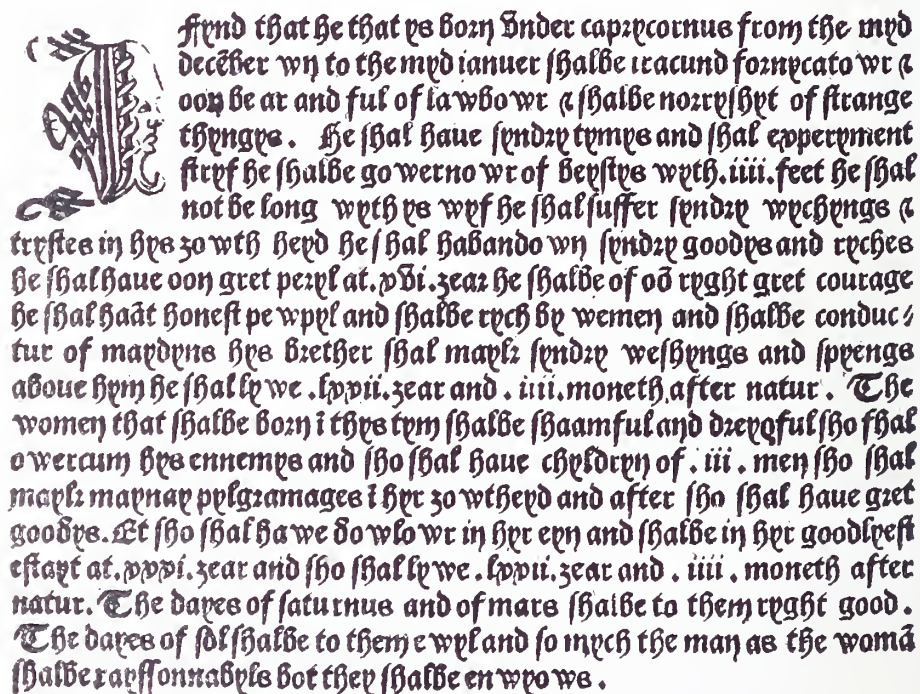 I Fynd that he that ys born vnder caprycornus from the myd
decēber wn to the myd ianuer ſhalbe iracund fornycato wr ⁊
oon be ar and ful of lawbowr ⁊ ſhalbe norryſhyt of ſtrange
thyngys. He ſhal haue ſyndry tymys and ſhal experyment
ſtryf he ſhalbe go werno wr of beyſtys wyth .iiii. feet he ſhal
not be long wyth ys wyf he ſhal ſuffer ſyndry wychyngs ⁊
tryſtes in hys zo wth heyd he ſhal habando wn ſyndry goodys and ryches
he ſhal haue oon gret peryl at .xvi. zear he ſhalbe of oō ryght gret courage
he ſhal haāt honeſt pe wpyl and ſhalbe rych by wemen and ſhalbe conduc⸗
tur of maydyns hys brether ſhal maylz ſyndry weſhyngs and ſpyengs
aboue hym he ſhal ly we .lxxii. zear and .iiii. moneth after natur. The
women that ſhalbe born ī thys tym ſhalbe ſhaamful and dreyqful ſho ſhal
o wercum hys ennemys and ſho ſhal haue chyldryn of .iii. men ſho ſhal
maylz maynay pylgramages ī hyr zo wtheyd and after ſho ſhal haue gret
goodys. Et ſho ſhal ha we do wlo wr in hyr eyn and ſhalbe in hyr goodlyeſt
eſtayt at .xxxi. zear and ſho ſhal ly we .lxxii. zear and .iiii. moneth after
natur. The dayes of ſaturnus and of mars ſhalbe to them ryght good.
The dayes of ſol ſhalbe to them e wyl and ſo mych the man as the womā
ſhalbe rayſſonnabyls bot they ſhalbe en wyo ws.